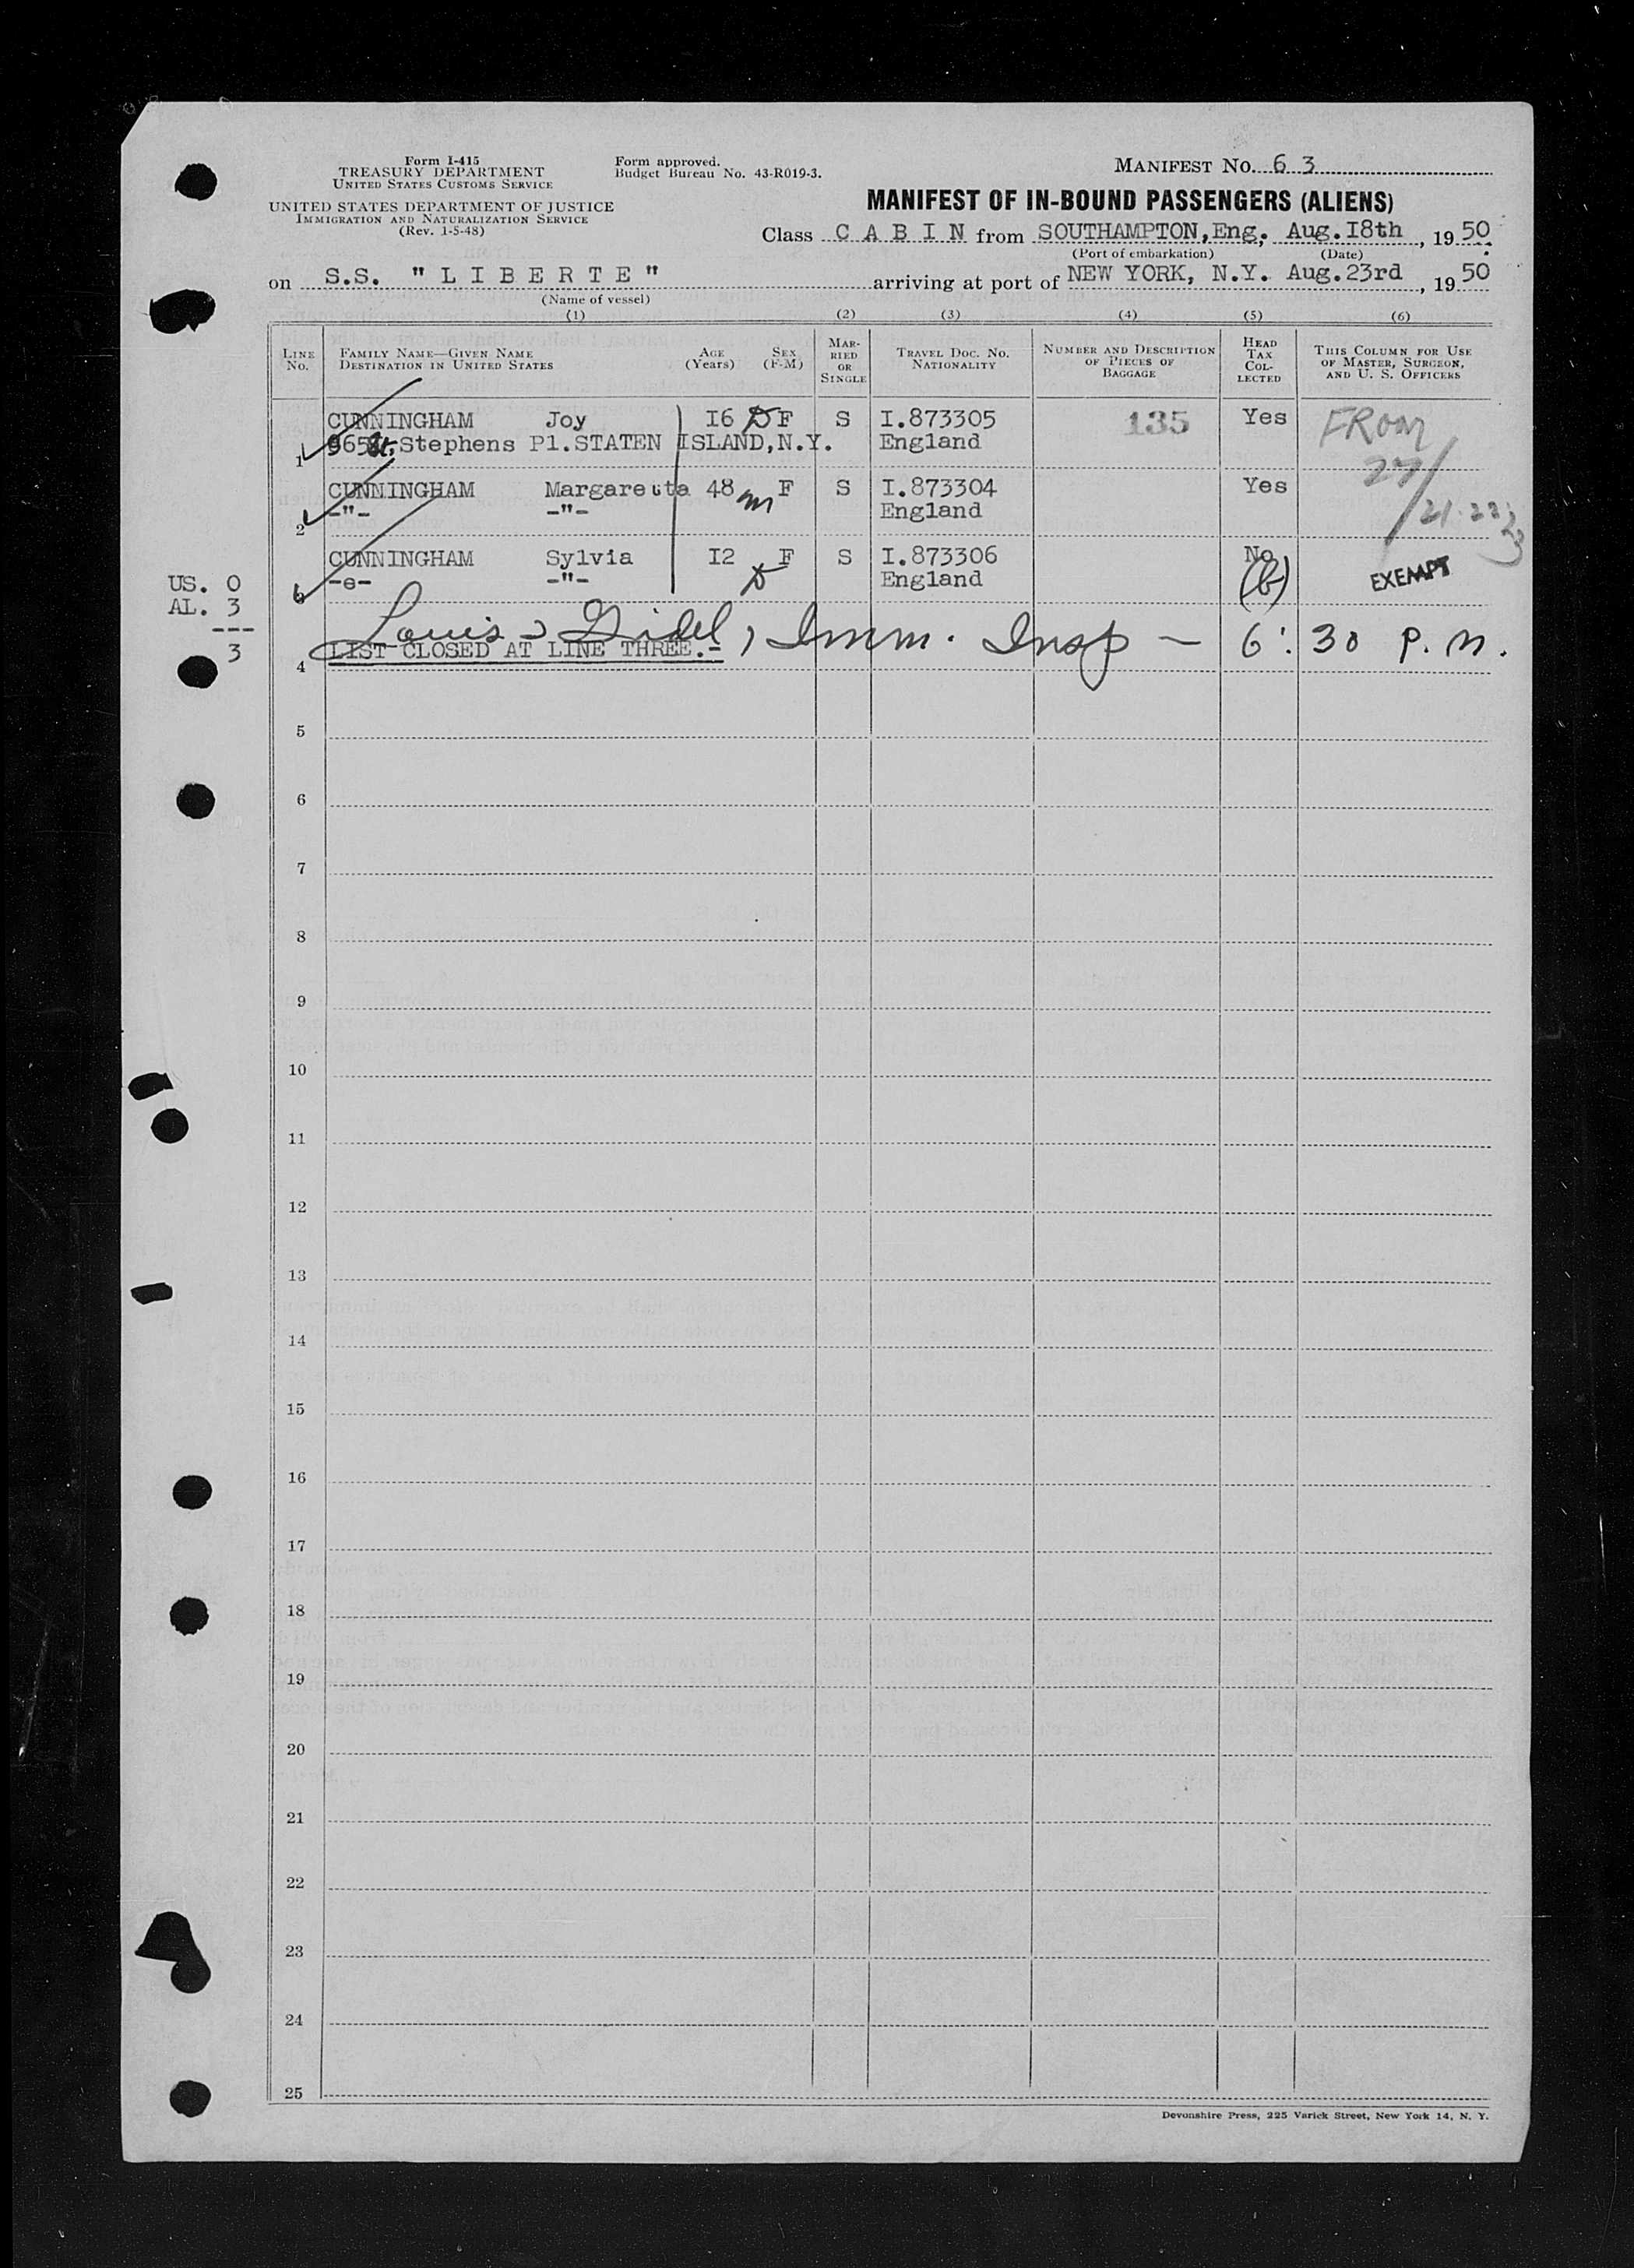 Form I-415
TREASURY DEPARTMENT
UNITED STATES CUSTOMS SERVICE
UNITED STATES DEPARTMENT OF JUSTICE
IMMIGRATION AND NATURALIZATION SERVICE
(Rev. 1-5-48)
Form approved.
Budget Bureau No. 43-R019-3.
MANIFEST NO. 63
MANIFEST OF IN-BOUND PASSENGERS (ALIENS)
Class C A B I N from SOUTHAMPTON, Eng. Aug. I8th, 1950
(Port of embarkation) (Date)
on S.S. " L I B E R T E " arriving at port of NEW YORK, N.Y. Aug.23rd, 1950
(Name of vessel)
(1) (2) (3) (4) (5) (6)
LINE NO. FAMILY NAME—GIVEN NAME DESTINATION IN UNITED STATES AGE (Years) SEX (F-M) MARRIED OR SINGLE TRAVEL DOC. NO. NATIONALITY NUMBER AND DESCRIPTION OF PIECES OF BAGGAGE HEAD TAX COLLECTED THIS COLUMN FOR USE OF MASTER, SURGEON, AND U. S. OFFICERS
CUNNINGHAM Joy I6 D F S I.873305 135 Yes FROM
1 965 St. Stephens Pl. STATEN ISLAND, N.Y. England 27/
CUNNINGHAM Margaretta 48 m F S I.873304 Yes
2 -"- -"- England 21.22.23
CUNNINGHAM Sylvia I2 D F S I.873306 No
3 -e- -"- England (b) EXEMPT
US. 0
AL. 3
---
3
Louis J Gidel, Imm. Insp — 6:30 P.M.
4 LIST CLOSED AT LINE THREE.-
5
6
7
8
9
10
11
12
13
14
15
16
17
18
19
20
21
22
23
24
25
Devonshire Press, 225 Varick Street, New York 14, N. Y.